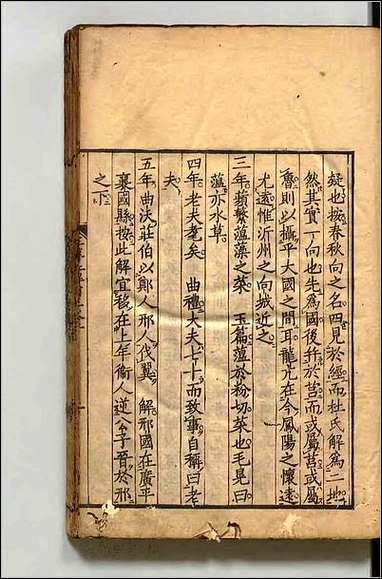 疑也按春秋向之名四見於經而杜氏解為二地
然其實一向也先為國後并於莒而或屬莒或屬
魯則以攝乎大國之間耳龍亢在今鳳陽之懷遠
尤遠惟沂州之向城近之
三年蘋蘩薀藻之菜　玉篇薀於粉切菜也毛晃曰
薀亦水草
四年老夫耄矣　曲禮大夫七十而致事自稱曰老
夫
五年曲沃莊伯以鄭人邢人伐翼　解邢國在廣平
襄國縣按此解宜移在上年衞人逆公子晉於邢
之下